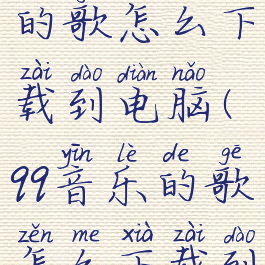 的歌怎么下
zài dào diàn nǎo
载到电脑(
yīn lè de gē
99音乐的歌
zěn me xià zài dào
怎么下载到